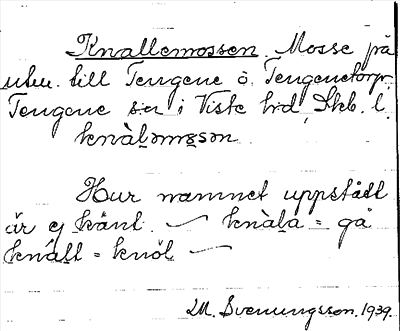 Knallemossen. Mosse på
utm. till Tengene o. Tengenetorp.
Tengene sn i Viste hd, Skb. l.
knàl̥əmɷsən
Hur namnet uppstått
är ej känt. — knàla = gå
knäll = knöl —
M. Svenungsson. 1939.